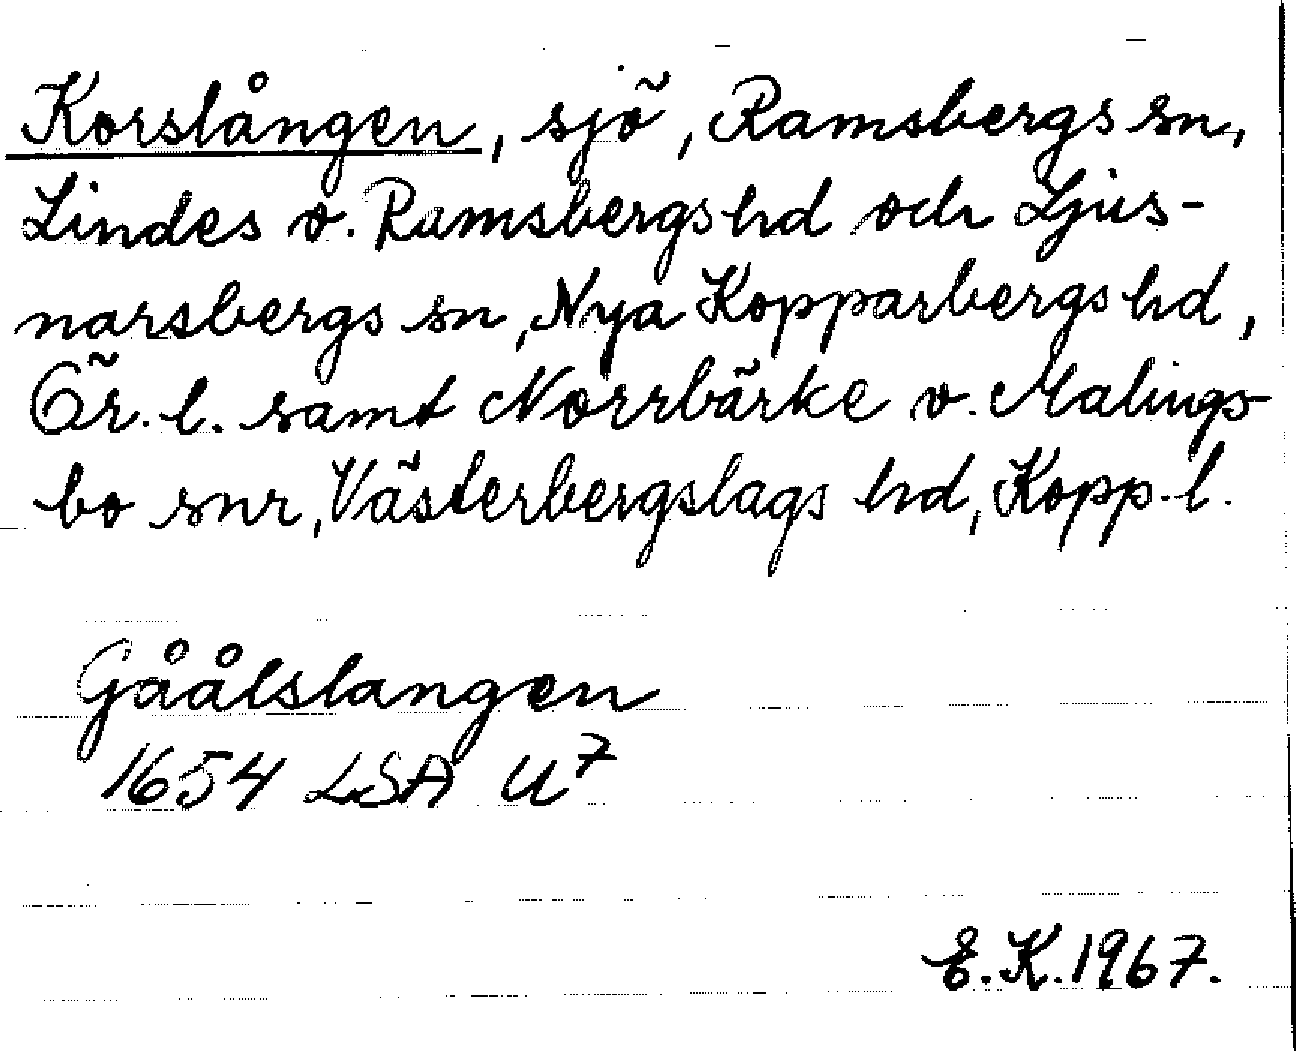 Korslången, sjö, Ramsbergs sn,
Lindes o. Ramsbergs hd och Ljus-
narsbergs sn, Nya Kopparbergs hd,
Ör. l. samt Norrbärke o. Malings-
bo snr, Västerbergslags hd, Kopp. l.
Gåålslangen
1654 LSA U7
E.K. 1967.